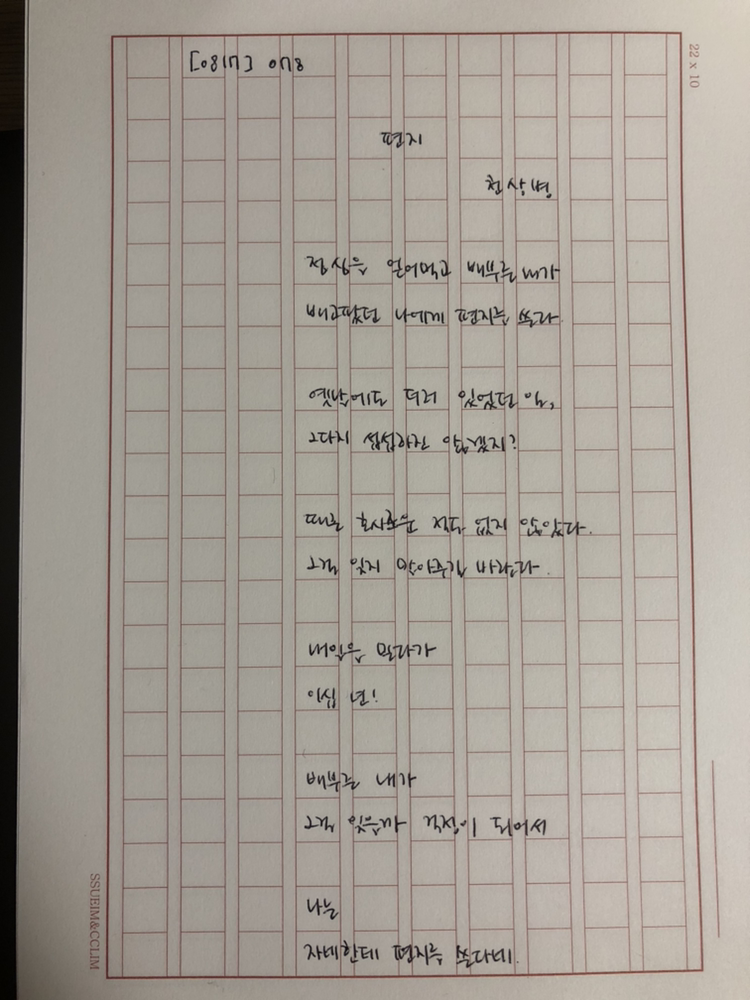 [0817] 078
편지
천상병
점심을 얻어먹고 배부른 내가
배고팠던 나에게 편지를 쓴다.
옛날에도 더러 있었던 일,
그다지 섭섭하진 않겠지?
때론 호사로운 적도 없지 않았다.
그걸 잊지 말아주기 바란다.
내일을 믿다가
이십 년!
배부른 내가
그걸 잊을까 걱정이 되어서
나는
자네한테 편지를 쓴다네.
22 x 10
SSUEIM&CCLIM